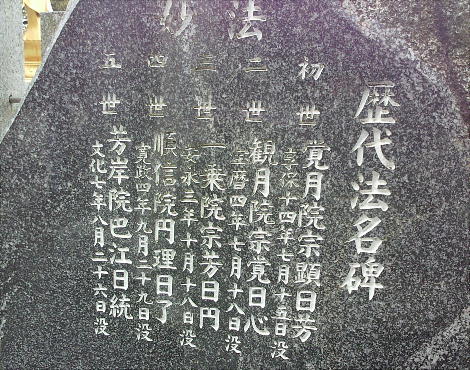 妙法
歴代法名碑
初世 覚月院宗顕日芳
享保十四年七月十五日没
二世 観月院宗覚日心
宝暦四年七月十八日没
三世 一乗院宗芳日円
安永三年十月十八日没
四世 順信院円理日了
寛政四年九月二十九日没
五世 芳岸院巴江日統
文化七年八月二十六日没